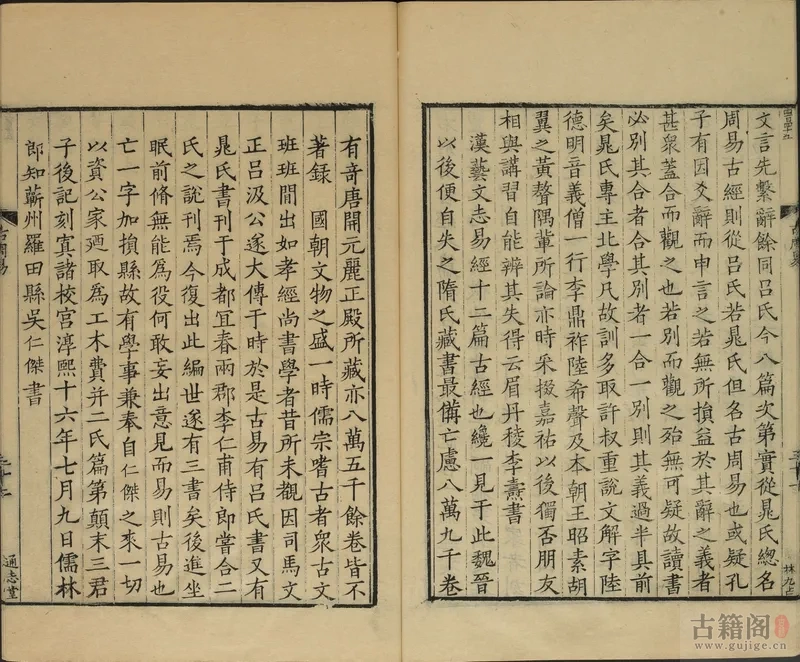 文言先繫辭餘同呂氏今八篇次第實從晁氏總名
周易古經則從呂氏若晁氏但名古周易也或疑孔
子有因爻辭而申言之若無所損益於其辭之義者
甚衆蓋合而觀之也若別而觀之殆無可疑故讀書
必別其合者合其別者一合一別則其義過半具前
矣晁氏專主北學凡故訓多取許叔重說文解字陸
德明音義僧一行李鼎祚陸希聲及本朝王昭素胡
翼之黃聱隅輩所論亦時采掇嘉祐以後獨否朋友
相與講習自能辨其失得云眉丹稜李燾書
漢藝文志易經十二篇古經也纔一見于此魏晉
以後便自失之隋氏藏書最備亡慮八萬九千卷
古周易
有奇唐開元麗正殿所藏亦八萬五千餘卷皆不
著錄 國朝文物之盛一時儒宗嗜古者衆古文
班班閒出如孝經尚書學者昔所未覩因司馬文
正呂汲公遂大傳于時於是古易有呂氏書又有
晁氏書刊于成都宜春兩郡李仁甫侍郎嘗合二
氏之說刊焉今復出此編世遂有三書矣後進坐
眠前脩無能爲役何敢妄出意見而易則古易也
亡一字加損縣故有學事兼奉自仁傑之來一切
以資公家廼取爲工木費并二氏篇第顛末三君
子後記刻寘諸校宮淳熙十六年七月九日儒林
郎知蘄州羅田縣吳仁傑書
古周易
通志堂
古籍阁
www.gujige.cn